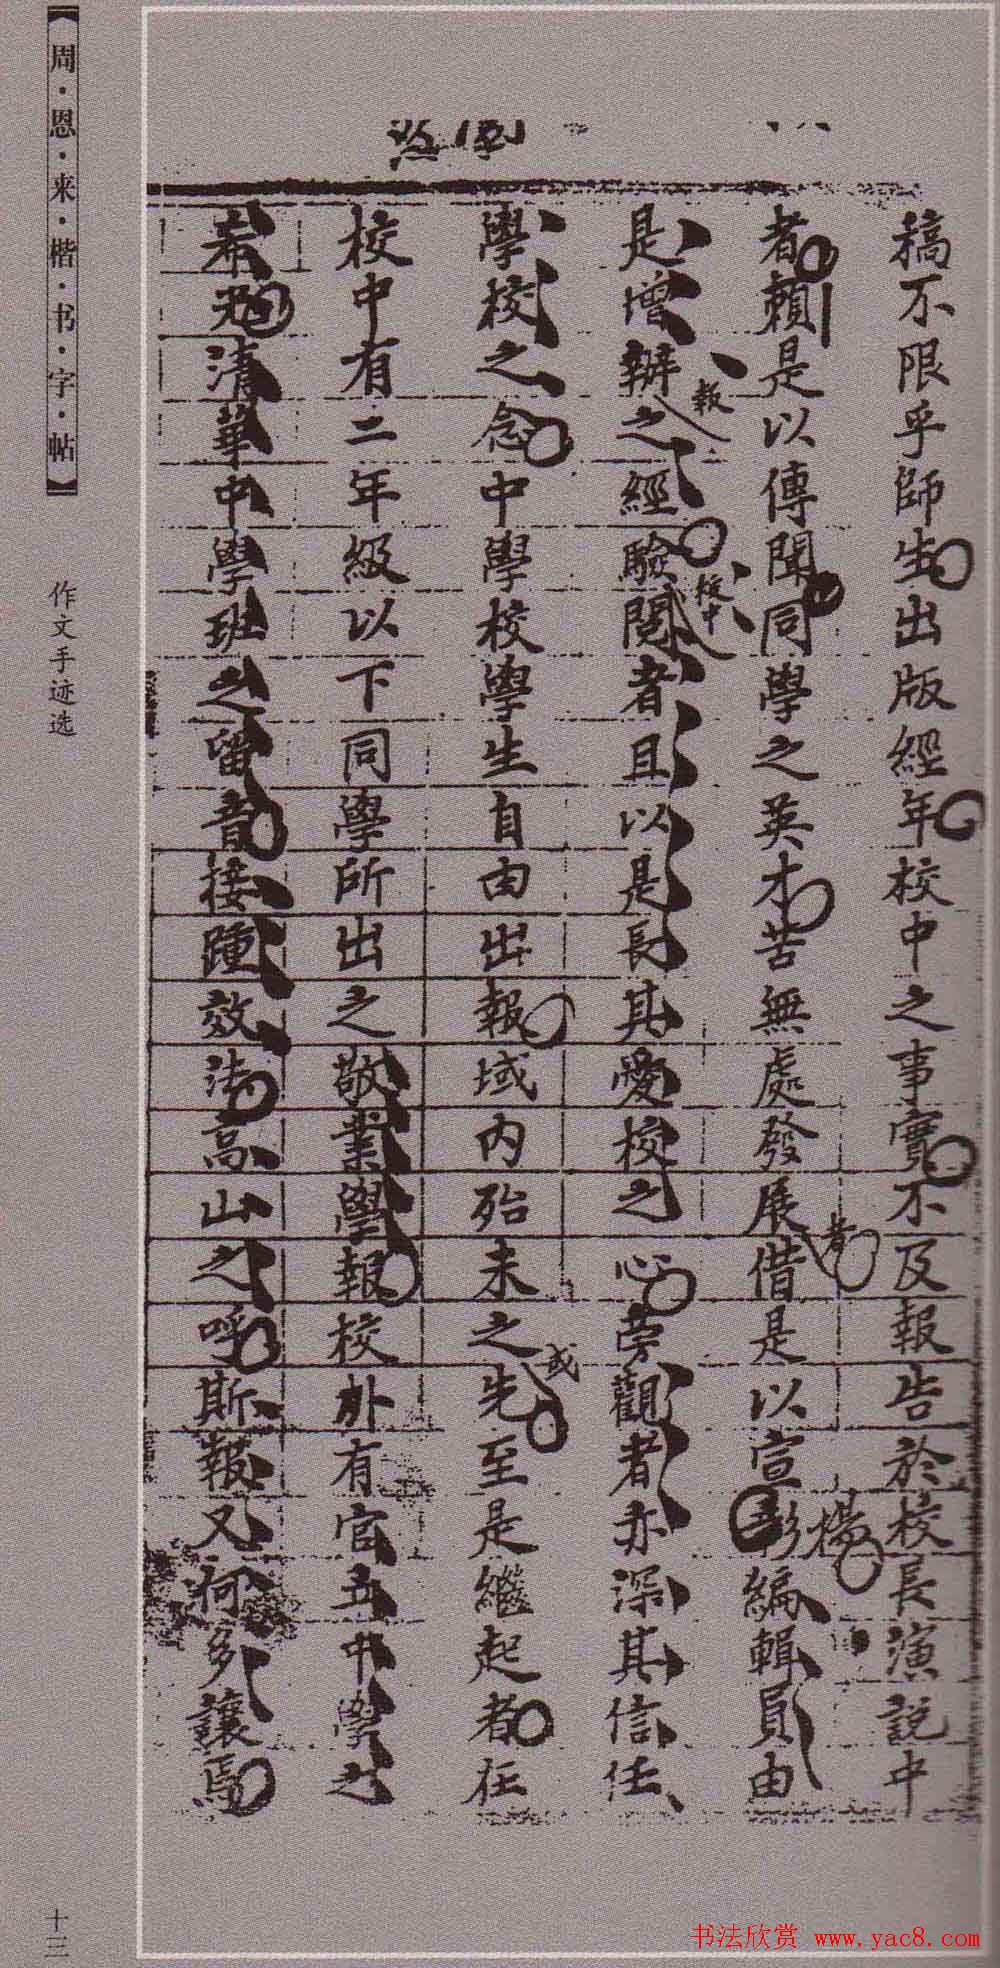 稿不限乎師生出版經年校中之事實不及報告於校長演說中
者賴是以傳聞同學之英才苦無處發展者借是以宣揚編輯員由
是增辦報之經驗校中閱者且以是長其愛校之心旁觀者亦深其信任
學校之念中學校學生自由出報域内殆未之或先至是繼起者在
校中有二年級以下同學所出之敬業學報校外有官立中學之
希光清華中學班之留音接踵效法高山之呼斯報又何多讓焉
【周·恩·来·楷·书·字·帖】
作文手迹选
十三
书法欣赏 www.yac8.com